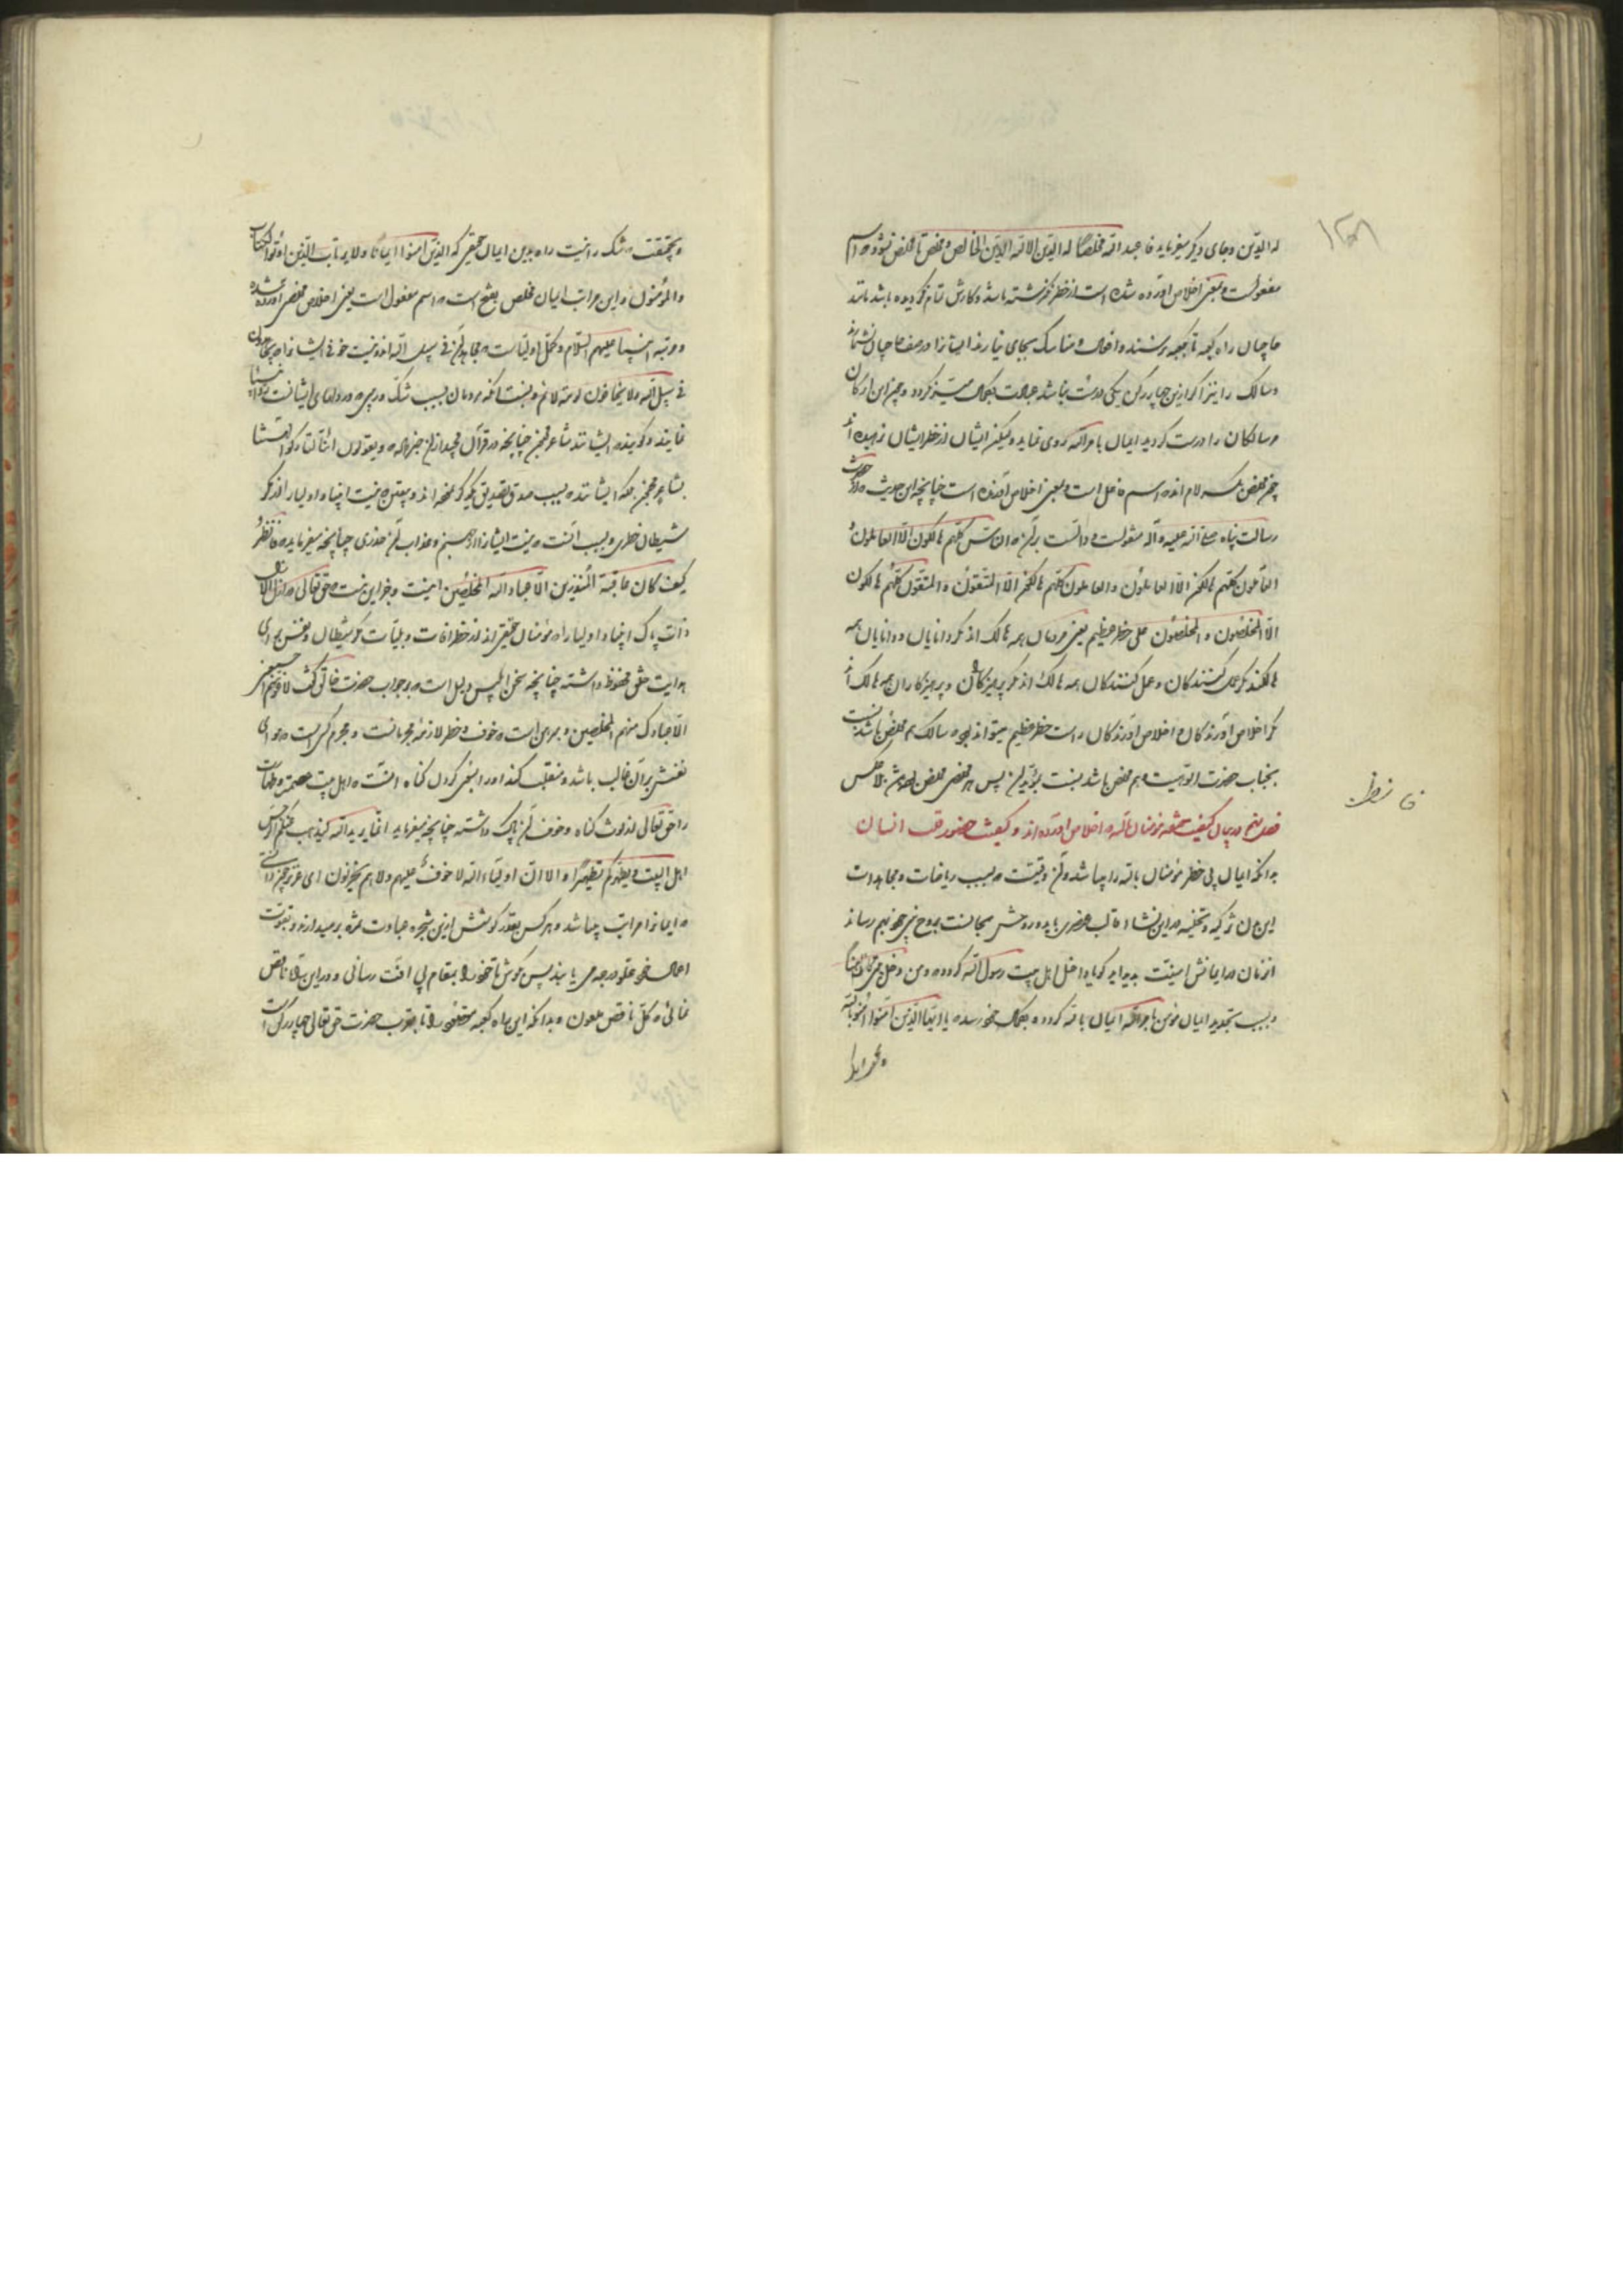 له الدین و جای دیگر میفرماید فاعبد الله مخلصا له الدین الا لله الدین الخالص و مخلص تا مخلص نشود که اسم
مفعولست و بمعنی اخلاص آورده شده است از خطر نگذشته باشد و کارش تمام نگردیده باشد مانند
حاجیان راه کعبه تا بکعبه نرسند و افعال و مناسک بجای نیارند ایشانرا در صف حاجیان نشمارند
و سالک را نیز اگر ازین چهار رکن یکی درست نباشد عبادت بکمال میسر نگردد و چون این ارکان
مر سالکان را درست گردید ایمان بامر الله روی نماید ولیکن ایشان از خطر ایشان نرهیده اند
چون مخلص بکسر لام اند که اسم فاعل است و بمعنی اخلاص آورنده است چنانچه این حدیث که از حضرت
رسالت پناه صلی الله علیه و آله منقولست دالست بر آن که الناس کلهم هالکون الا العالمون
العالمون کلهم هالکون الا العاملون و العاملون کلهم هالکون الا المتقون و المتقون کلهم هالکون
الا المخلصون و المخلصون علی خطر عظیم یعنی مردمان همه هالک اند مگر دانایان و دانایان همه
هالکند مگر عمل کنندگان و عمل کنندگان همه هالک اند مگر پرهیزکاران و پرهیزکاران همه هالک اند
مگر اخلاص آورندگان و اخلاص آورندگان راست خطر عظیم میتواند بود که سالک هم مخلص باشد نسبت
بجناب حضرت الوهیت و هم مخلص باشد نسبت پس هر مخلصی مخلص باشد بلا عکس
فصل پنجم در بیان کیفیت مؤمنان بالله که اخلاص آورده اند و کیفیت حضور قلب انسان
بدانکه ایمان بی خطر مؤمنان بالله را میباشد و آن وقتیست که بسبب ریاضات و مجاهدات
این تزکیه و تخلیه در این نشاء قالب عنصری باید و روحش مجانست بروح نبی بهم رساند
آنزمان در ایمانش امنیت پدید آید گویا داخل اهل بیت رسول الله گردد که و من دخله کان آمنا
و بسبب تجدید ایمان مؤمن بامر الله ایمان بالله گردد و بکمال خود رسد یا ایها الذین آمنوا آمنوا بالله
و بحقیقت که شک را نیست راه بدین ایمان حقیقی که الذین آمنوا ایمانا و لا یرتاب الذین اوتوا الکتاب
و المؤمنون و این مراتب ایمان مخلص بفتح است که اسم مفعول است یعنی اخلاص آورده شده
و مرتبه انبیا علیهم السلام و کمل اولیاست که مجاهدون فی سبیل الله اند و نیست خوفی ایشانرا چه یجاهدون
فی سبیل الله و لا یخافون لومة لائم و نسبت آنکه مردمان بسبب شک در پی و رد دلهای ایشانست
نمایند و گویند که ایشانند شاعر مجنون چنانچه در قرآن مجید از آن خبر داد که و یقولون ائنا لتارکوا آلهتنا
لشاعر مجنون بلکه ایشانند که بسبب صدق تصدیق یکدیگر نموده اند و بیقین که نیست انبیا و اولیا را از مکر
شیطان خطری و بسبب آنست که نیست ایشانرا از جهنم و عذاب آن حذری چنانچه میفرماید که فانظر
کیف کان عاقبة المنذرین الا عباد الله المخلصین امنیت و بجز این نیست که حق تعالی در ازل الازال
ذات پاک انبیا و اولیا را و مؤمنان حقیقی اند از خطر آفات و بلیات مکر شیطان و نفس بهوای
هدایت حق محفوظ داشته چنانچه سخن ابلیس دلیل است که بجواب حضرت خالق گفت لاغوینهم اجمعین
الا عبادک منهم المخلصین و مبرهن است که خوف و خطر لازمه مجرمانست و مجرم کسی است که هوای
نفسش بر آن غالب باشد و منقلب کند او را بسعی کردن گناه آنست که اهل بیت عصمت و طهارت
را حق تعالی از لوث گناه و خوف آن پاک داشته چنانچه میفرماید انما یرید الله لیذهب عنکم الرجس
اهل البیت و یطهرکم تطهیرا و الا ان اولیاء الله لا خوف علیهم و لا هم یحزنون ای عزیز چون دانستی
که ایمانرا مراتب میباشد و هر کس بقدر کوشش ازین شجره عبادت ثمره برمیدارند و بقوت
اعمال خود علو درجه می یابند پس بکوش تا خود را بمقام بی آفت رسانی و در این تلاش ناقص
نمانی که کل ناقص ملعون و بدانکه این راه کعبه حقیقی را تا بقرب حضرت حق تعالی چهار رکن است